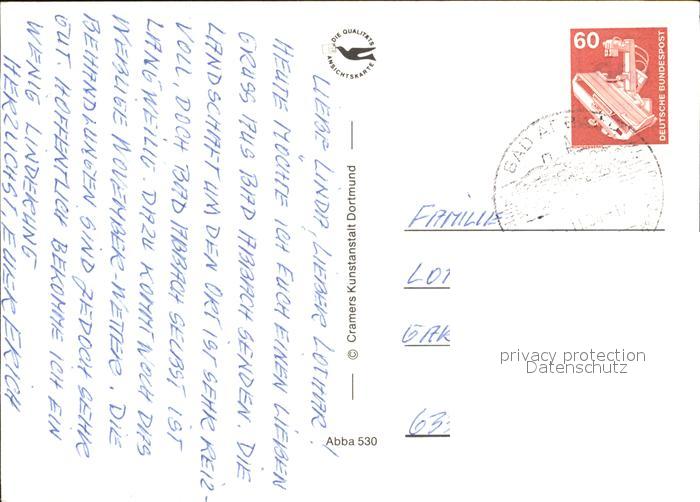 LIEBE LINDA, LIEBER LOTHAR!
HEUTE MÖCHTE ICH EUCH EINEN LIEBEN
GRUSS AUS BAD ABBACH SENDEN. DIE
LANDSCHAFT UM DEN ORT IST SEHR REIZ-
VOLL, DOCH BAD ABBACH SELBST IST
LANGWEILIG. DAZU KOMMT NOCH DAS
NEBLIGE NOVEMBER-WETTER. DIE
BEHANDLUNGEN SIND JEDOCH SEHR
GUT. HOFFENTLICH BEKOMME ICH EIN
WENIG LINDERUNG
HERZLICHST, EUER ERICH
DIE QUALITÄTS
ANSICHTSKARTE
© Cramers Kunstanstalt Dortmund
Abba 530
60
DEUTSCHE BUNDESPOST
BAD
FAMILIE
LOT
GAR
63
privacy protection
Datenschutz